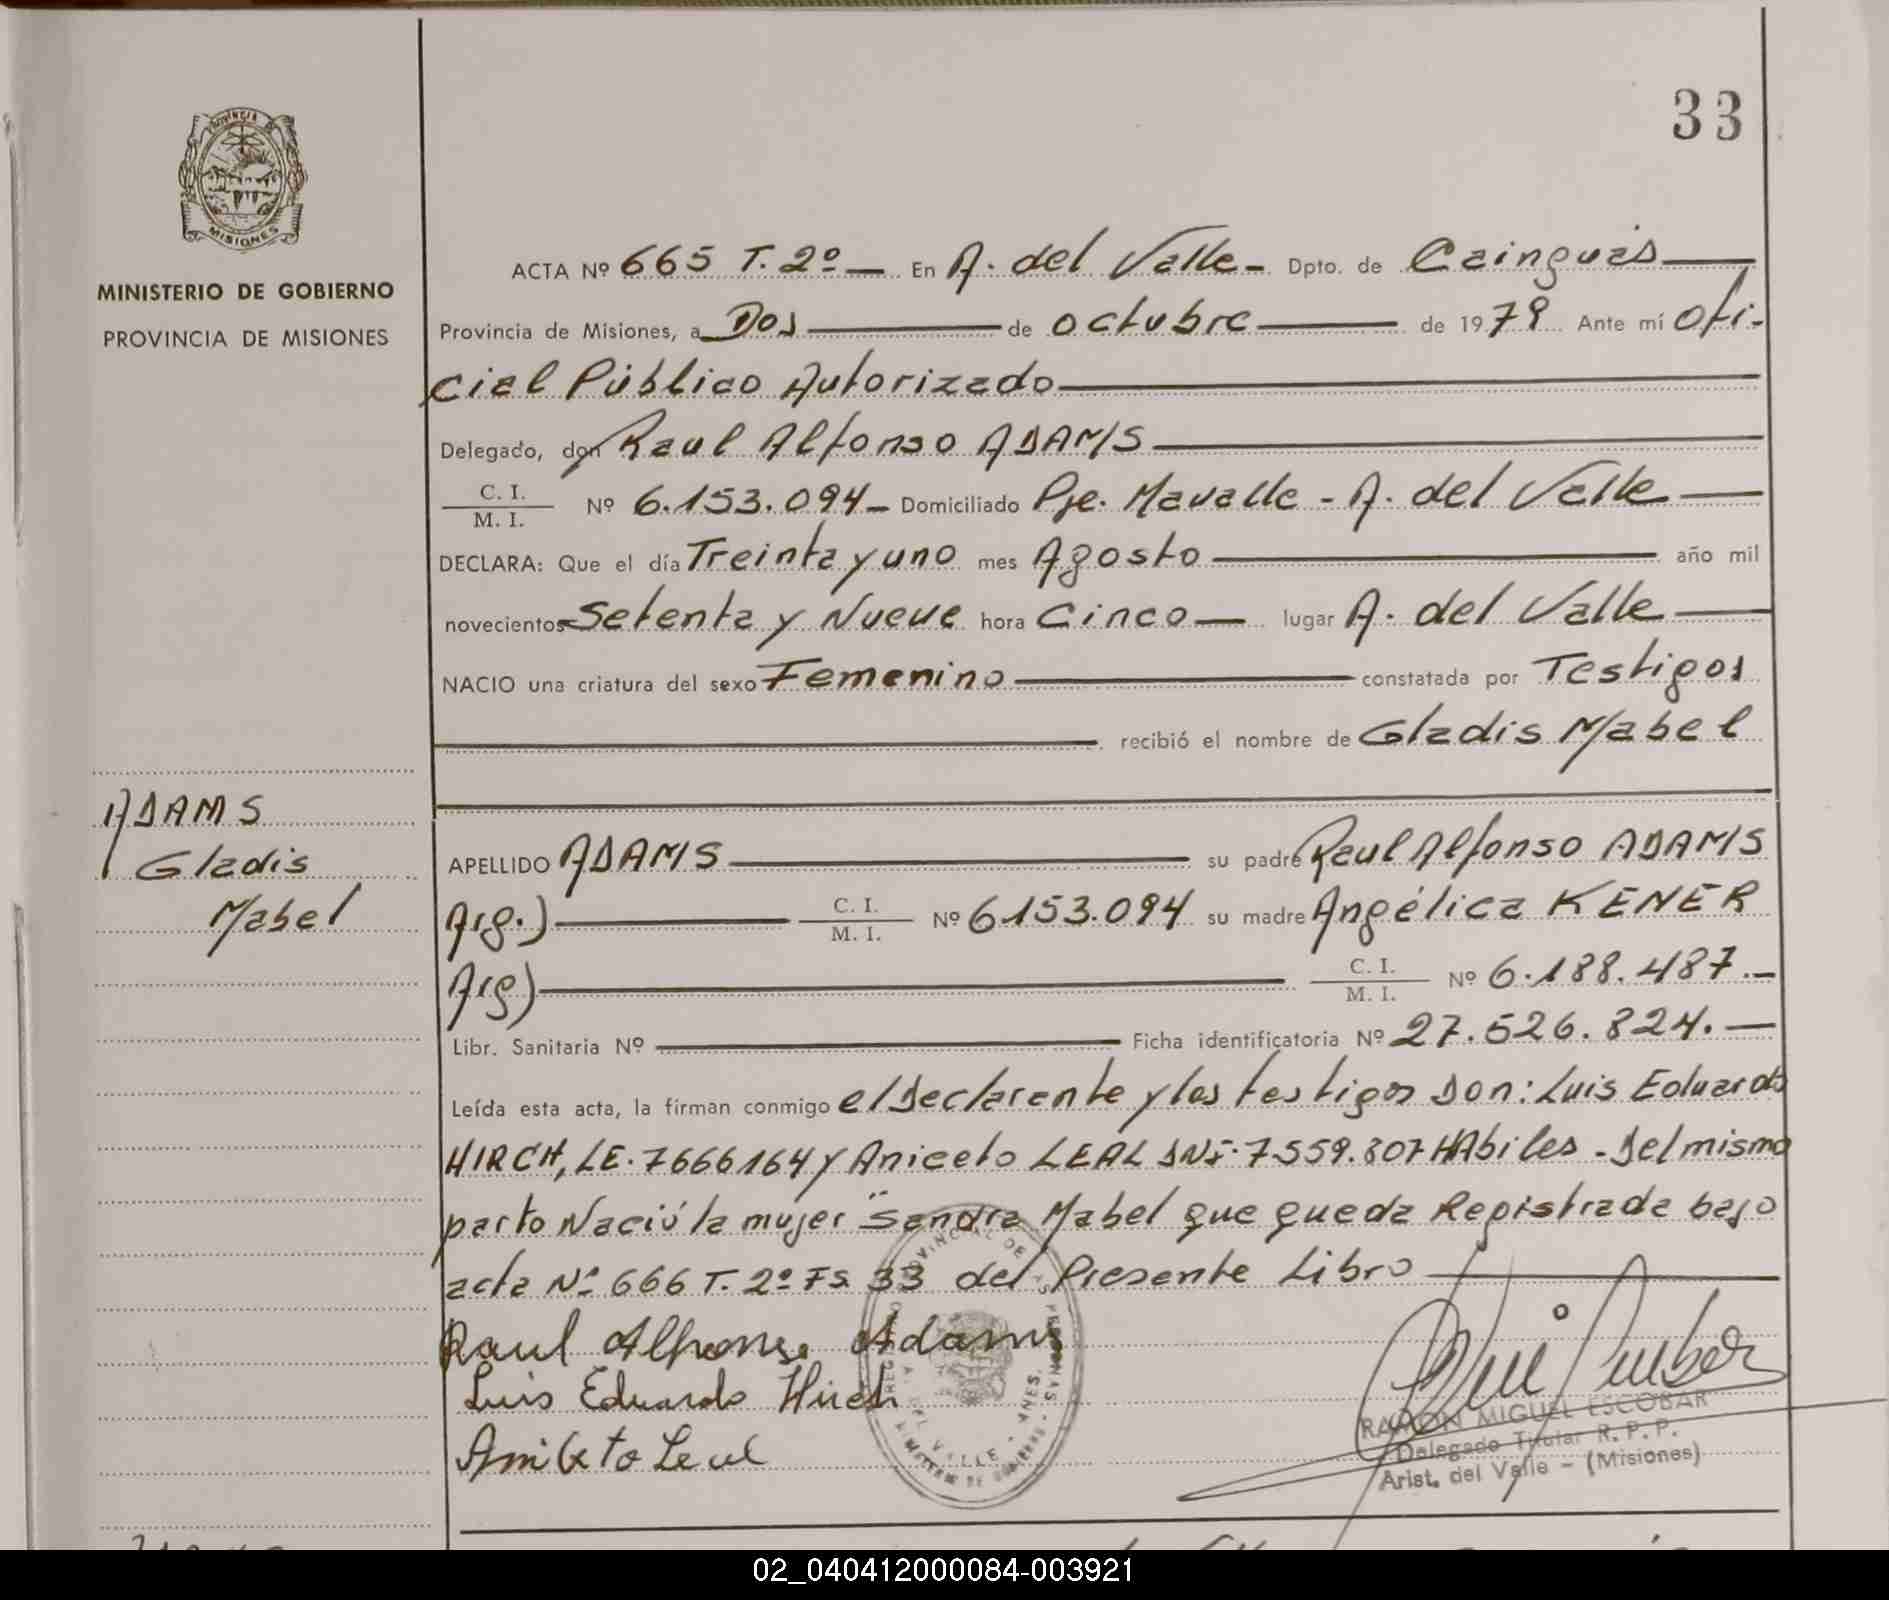 33
PROVINCIA DE
MISIONES
MINISTERIO DE GOBIERNO
PROVINCIA DE MISIONES
ACTA Nº 665 T. 2º — En A. del Valle - Dpto. de Cainguás —
Provincia de Misiones, a Dos — de octubre — de 1979 Ante mí Ofi-
cial Público Autorizado —
Delegado, don Raul Alfonso ADAMS —
C. I.
M. I. Nº 6.153.094 - Domiciliado Pje. Mavalle - A. del Valle —
DECLARA: Que el día Treinta y uno mes Agosto — año mil
novecientos Setenta y Nueve hora Cinco — lugar A. del Valle —
NACIO una criatura del sexo Femenino — constatada por Testigos
— recibió el nombre de Gladis Mabel
ADAMS
Gladis
Mabel
APELLIDO ADAMS — su padre Raul Alfonso ADAMS
Arg.) — C. I.
M. I. Nº 6153.094 su madre Angélica KENER
Arg) — C. I.
M. I. Nº 6.188.487.-
Libr. Sanitaria Nº — Ficha identificatoria Nº 27.526.824. —
Leída esta acta, la firman conmigo el Declarente y los testigos Don: Luis Eduardo
HIRCH, LE. 7666164 y Aniceto LEAL DNI. 7.559.807 HAbiles - Del mismo
parto Nació la mujer "Sandra Mabel que queda Registrada bajo
acta Nº 666 T. 2º Fs. 33 del Presente Libro —
Raul Alfonso Adams
Luis Eduardo Hirch
Aniceto Leal
A. DEL VALLE - MNES.
RAMON MIGUEL ESCOBAR
Delegado Titular R. P. P.
Arist. del Valle - (Misiones)
02_040412000084-003921